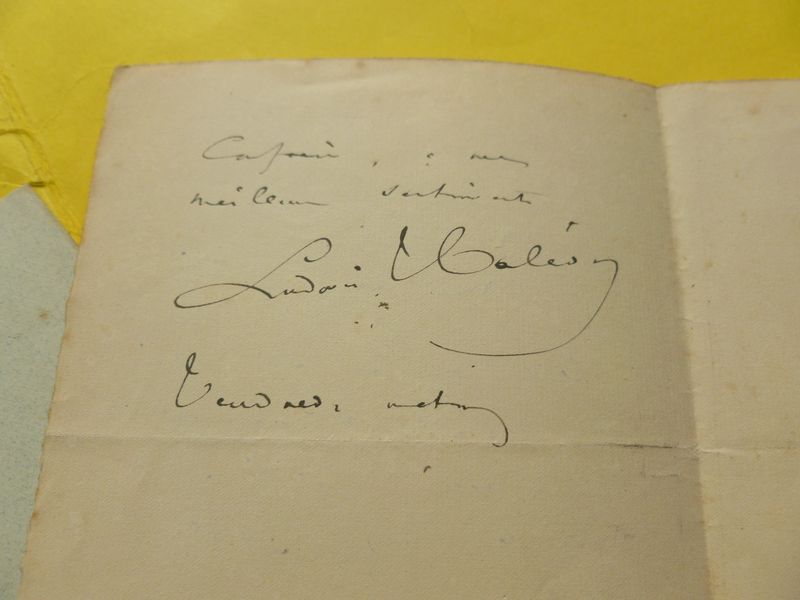 Croyez, à mes
meilleurs sentiments
Ludovic Halévy
Vendredi matin